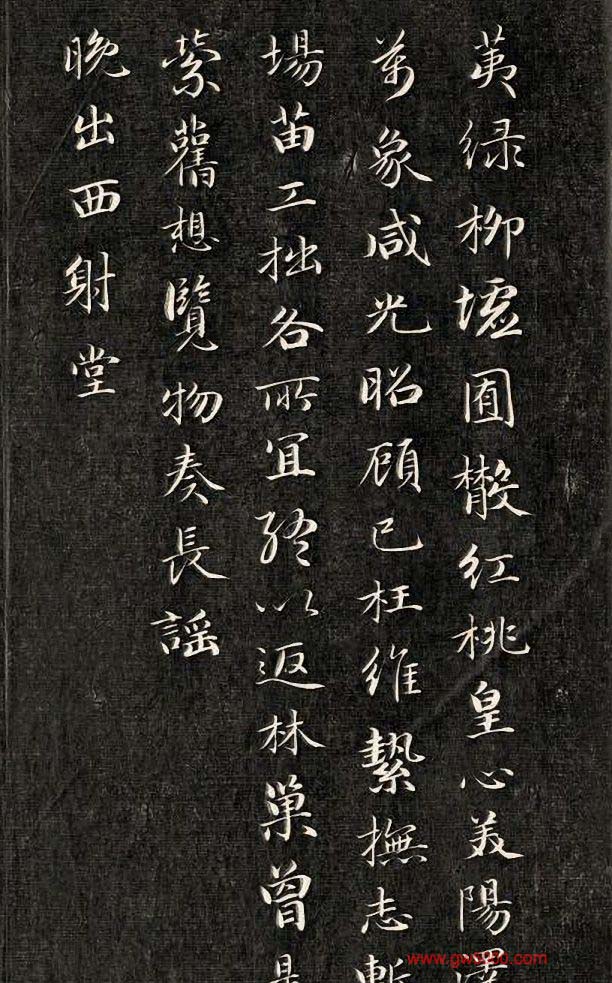 荑緑柳墟囿散紅桃皇心美陽澤
萬象咸光昭顧己枉維縶撫志慚
場苗工拙各所宜終以返林巢曾是
縈舊想覽物奏長謡
晚出西射堂